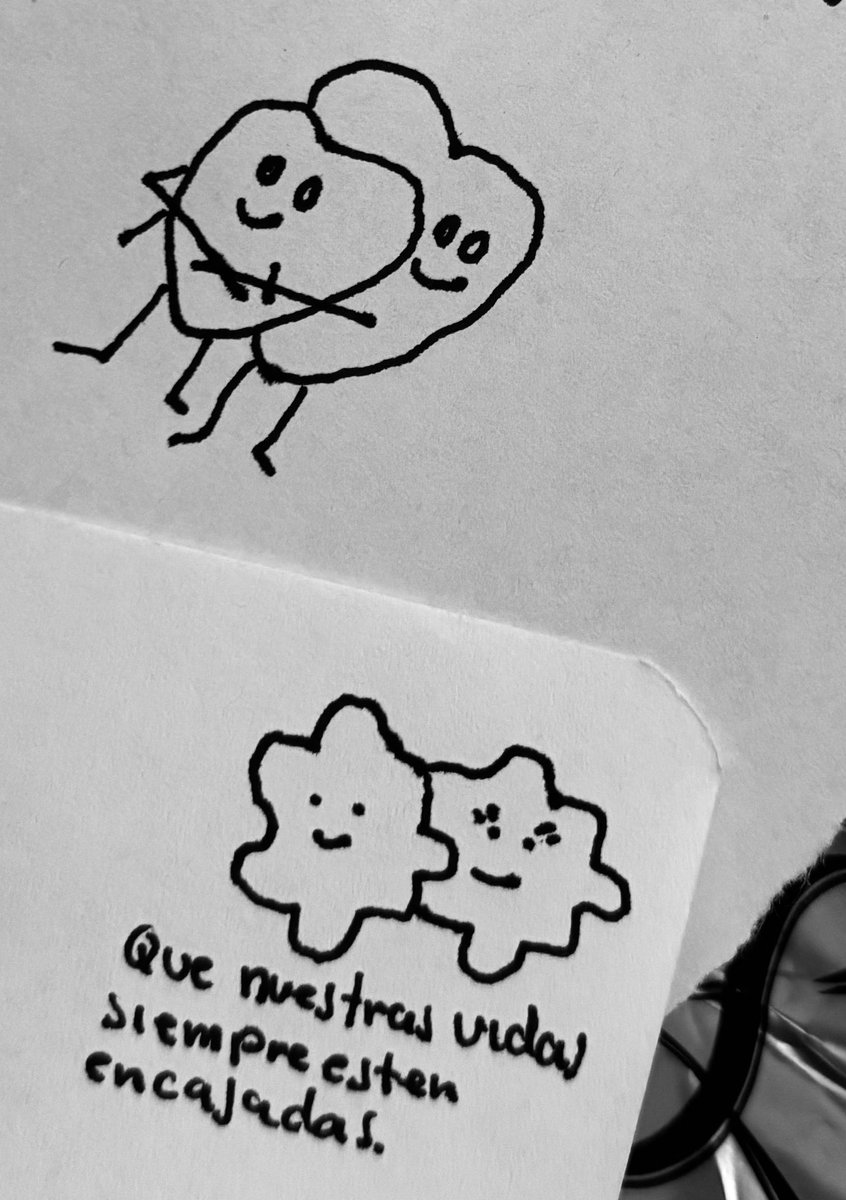 Que nuestras vidas
siempre esten
encajadas.